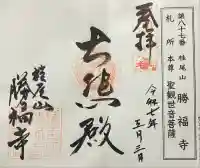 第八十七番 桂尾山
札所 勝福寺
本尊 聖観世音菩薩
奉拝
令和七年
五月三日
大悲殿
桂尾山
勝福寺